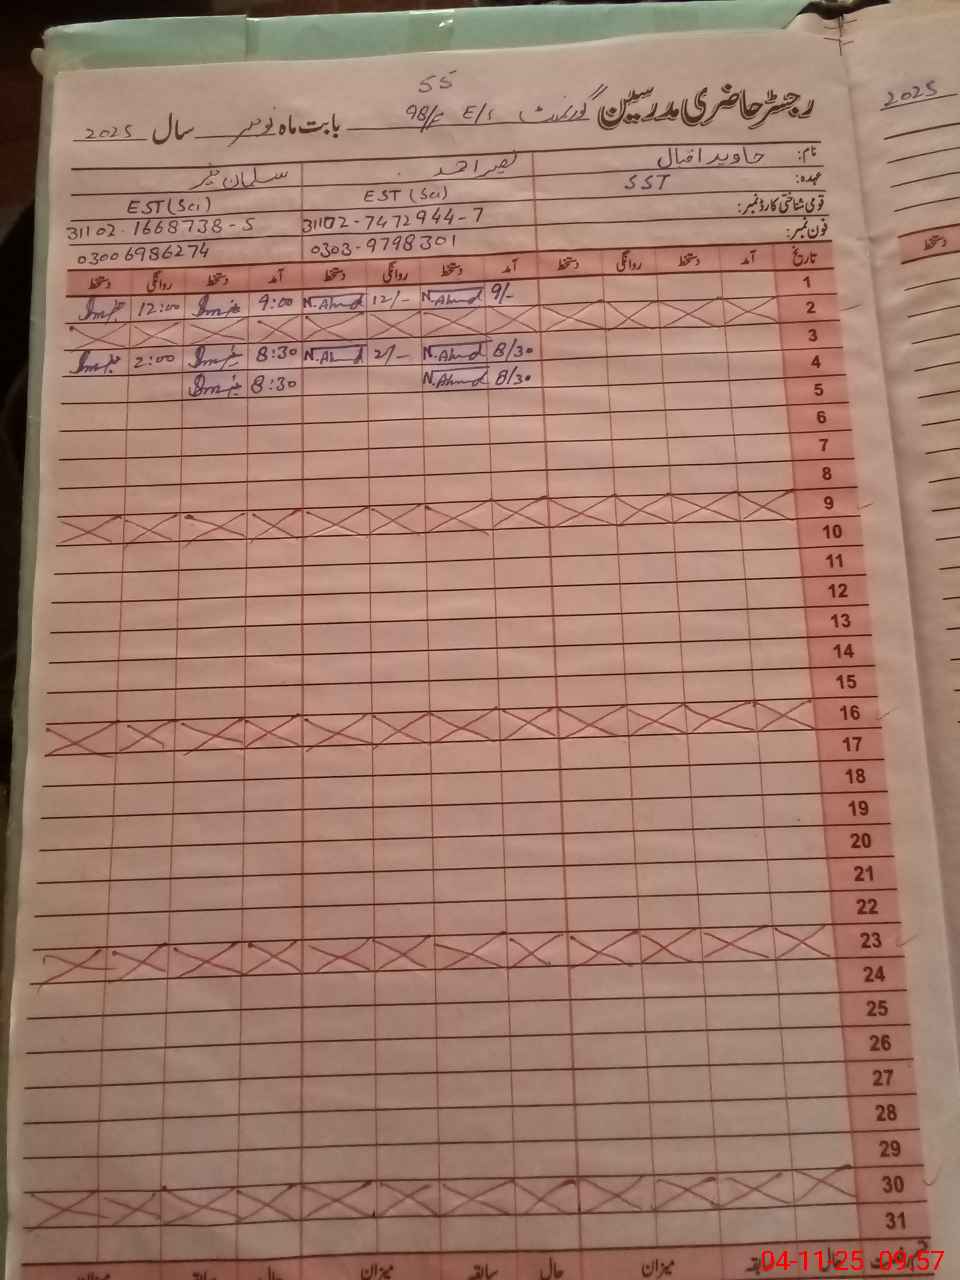 55
رجسٹر حاضری مدرسین گورنمنٹ E/S 98/F بابت ماہ نومبر سال 2025
2025
نام: جاوید اقبال نصیر احمد سلمان
عہدہ: SST EST (Sci) EST (Sci)
قومی شناختی کارڈ نمبر: 31102-7472944-7 31102-1668738-5
فون نمبر: 0303-9798301 03006986274
تاریخ آمد دستخط روانگی دستخط آمد دستخط روانگی دستخط آمد دستخط روانگی دستخط
دستخط
1 9/- N.Ahmd 12/- N.Ahmd 9:00 12:00
2
3 8/30 N.Ahmd 2/- N.Ahmd 8:30 2:00
4 8/30 N.Ahmd 8:30
5
6
7
8
9
10
11
12
13
14
15
16
17
18
19
20
21
22
23
24
25
26
27
28
29
30
31
حال سابقہ میزان حال سابقہ میزان حال سابقہ میزان
04-11-25 09:57